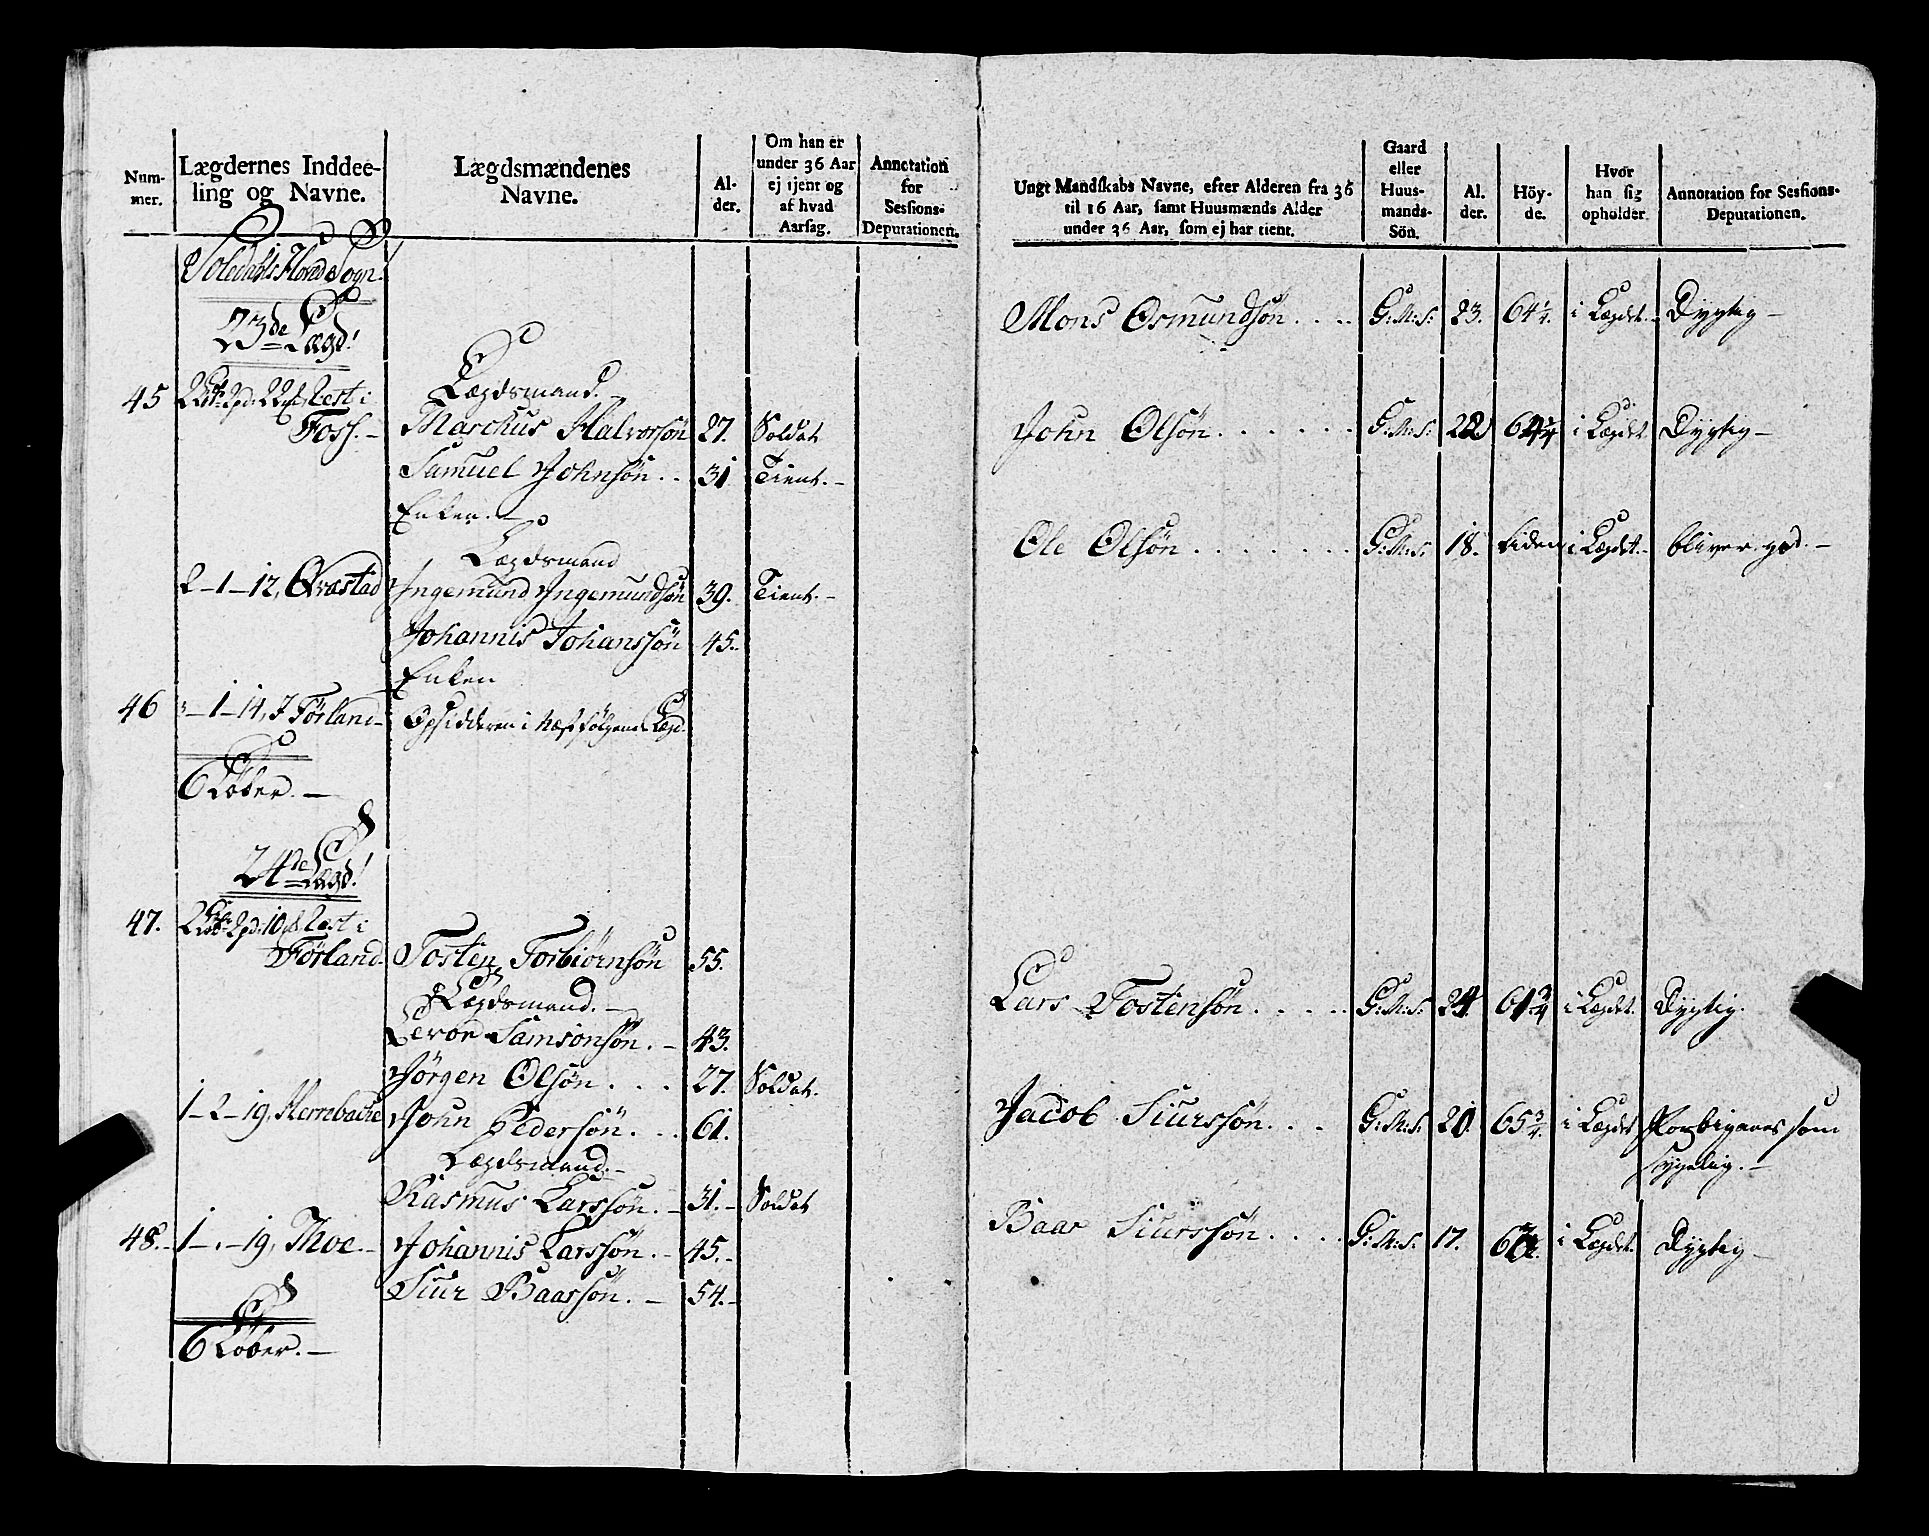 Num-
mer.
Lægdernes Inddee-
ling og Navne.
Lægdsmændenes
Navne.
Al-
der.
Om han er
under 36 Aar
ej tjent og
af hvad
Aarsag.
Annotation
for
Sessions-
Deputationen.
Sogn.
23de Lægd!
Lægdsmand.
45
Foss.
Marchus Halvorsøn 27. Soldat
Samuel Johnsøn . . 31 Tient.
Enken.
Lægdsmand
2-1-12, Qvæstad Ingemund Ingemundsøn 39. Tient.
Johannis Johanssøn 45.
Enken
46 -1-14, I Førland Opsidderen i næstfølgende Lægd.
6 Løber.
24de Lægd!
47.
Førland. Tosten Torbiørnsøn 55.
Lægdsmand.
Samsonsøn. 43.
Jørgen Olsøn . . . 27. Soldat.
1-2-19, John Pedersøn . . . 61.
Lægdsmand.
Rasmus Larssøn. 31. Soldat
48. 1-.-19, Thoe. Johannis Larssøn. 45.
Siur Baarssøn. 54.
6 Løber.
Ungt Mandskabs Navne, efter Alderen fra 36
til 16 Aar, samt Huusmænds Alder
under 36 Aar, som ej har tient.
Gaard
eller
Huus-
mands-
Søn.
Al-
der.
Höy-
de.
Hvor
han sig
opholder.
Annotation for Sessions-
Deputationen.
Mons Osmundsøn . . . G: M: S: 23. 64 1/4. i Lægdet. Dygtig
John Olsøn . . . . . . G: M: S: 22 i Lægdet Dygtig
Ole Olsøn . . . . . . . G: M: S: 18. liden i Lægdet. bliver god.
Lars Tostensøn . . . . . G: M: S: 24. 61 3/4 i Lægdet. Dygtig.
Jacob Siurssøn . . . G: M: S: 20. 65 3/4. i Lægdet Forbigaaes som
sygelig.
Baar Siurssøn . . . . G: M: S: 17. i Lægdet. Dygtig